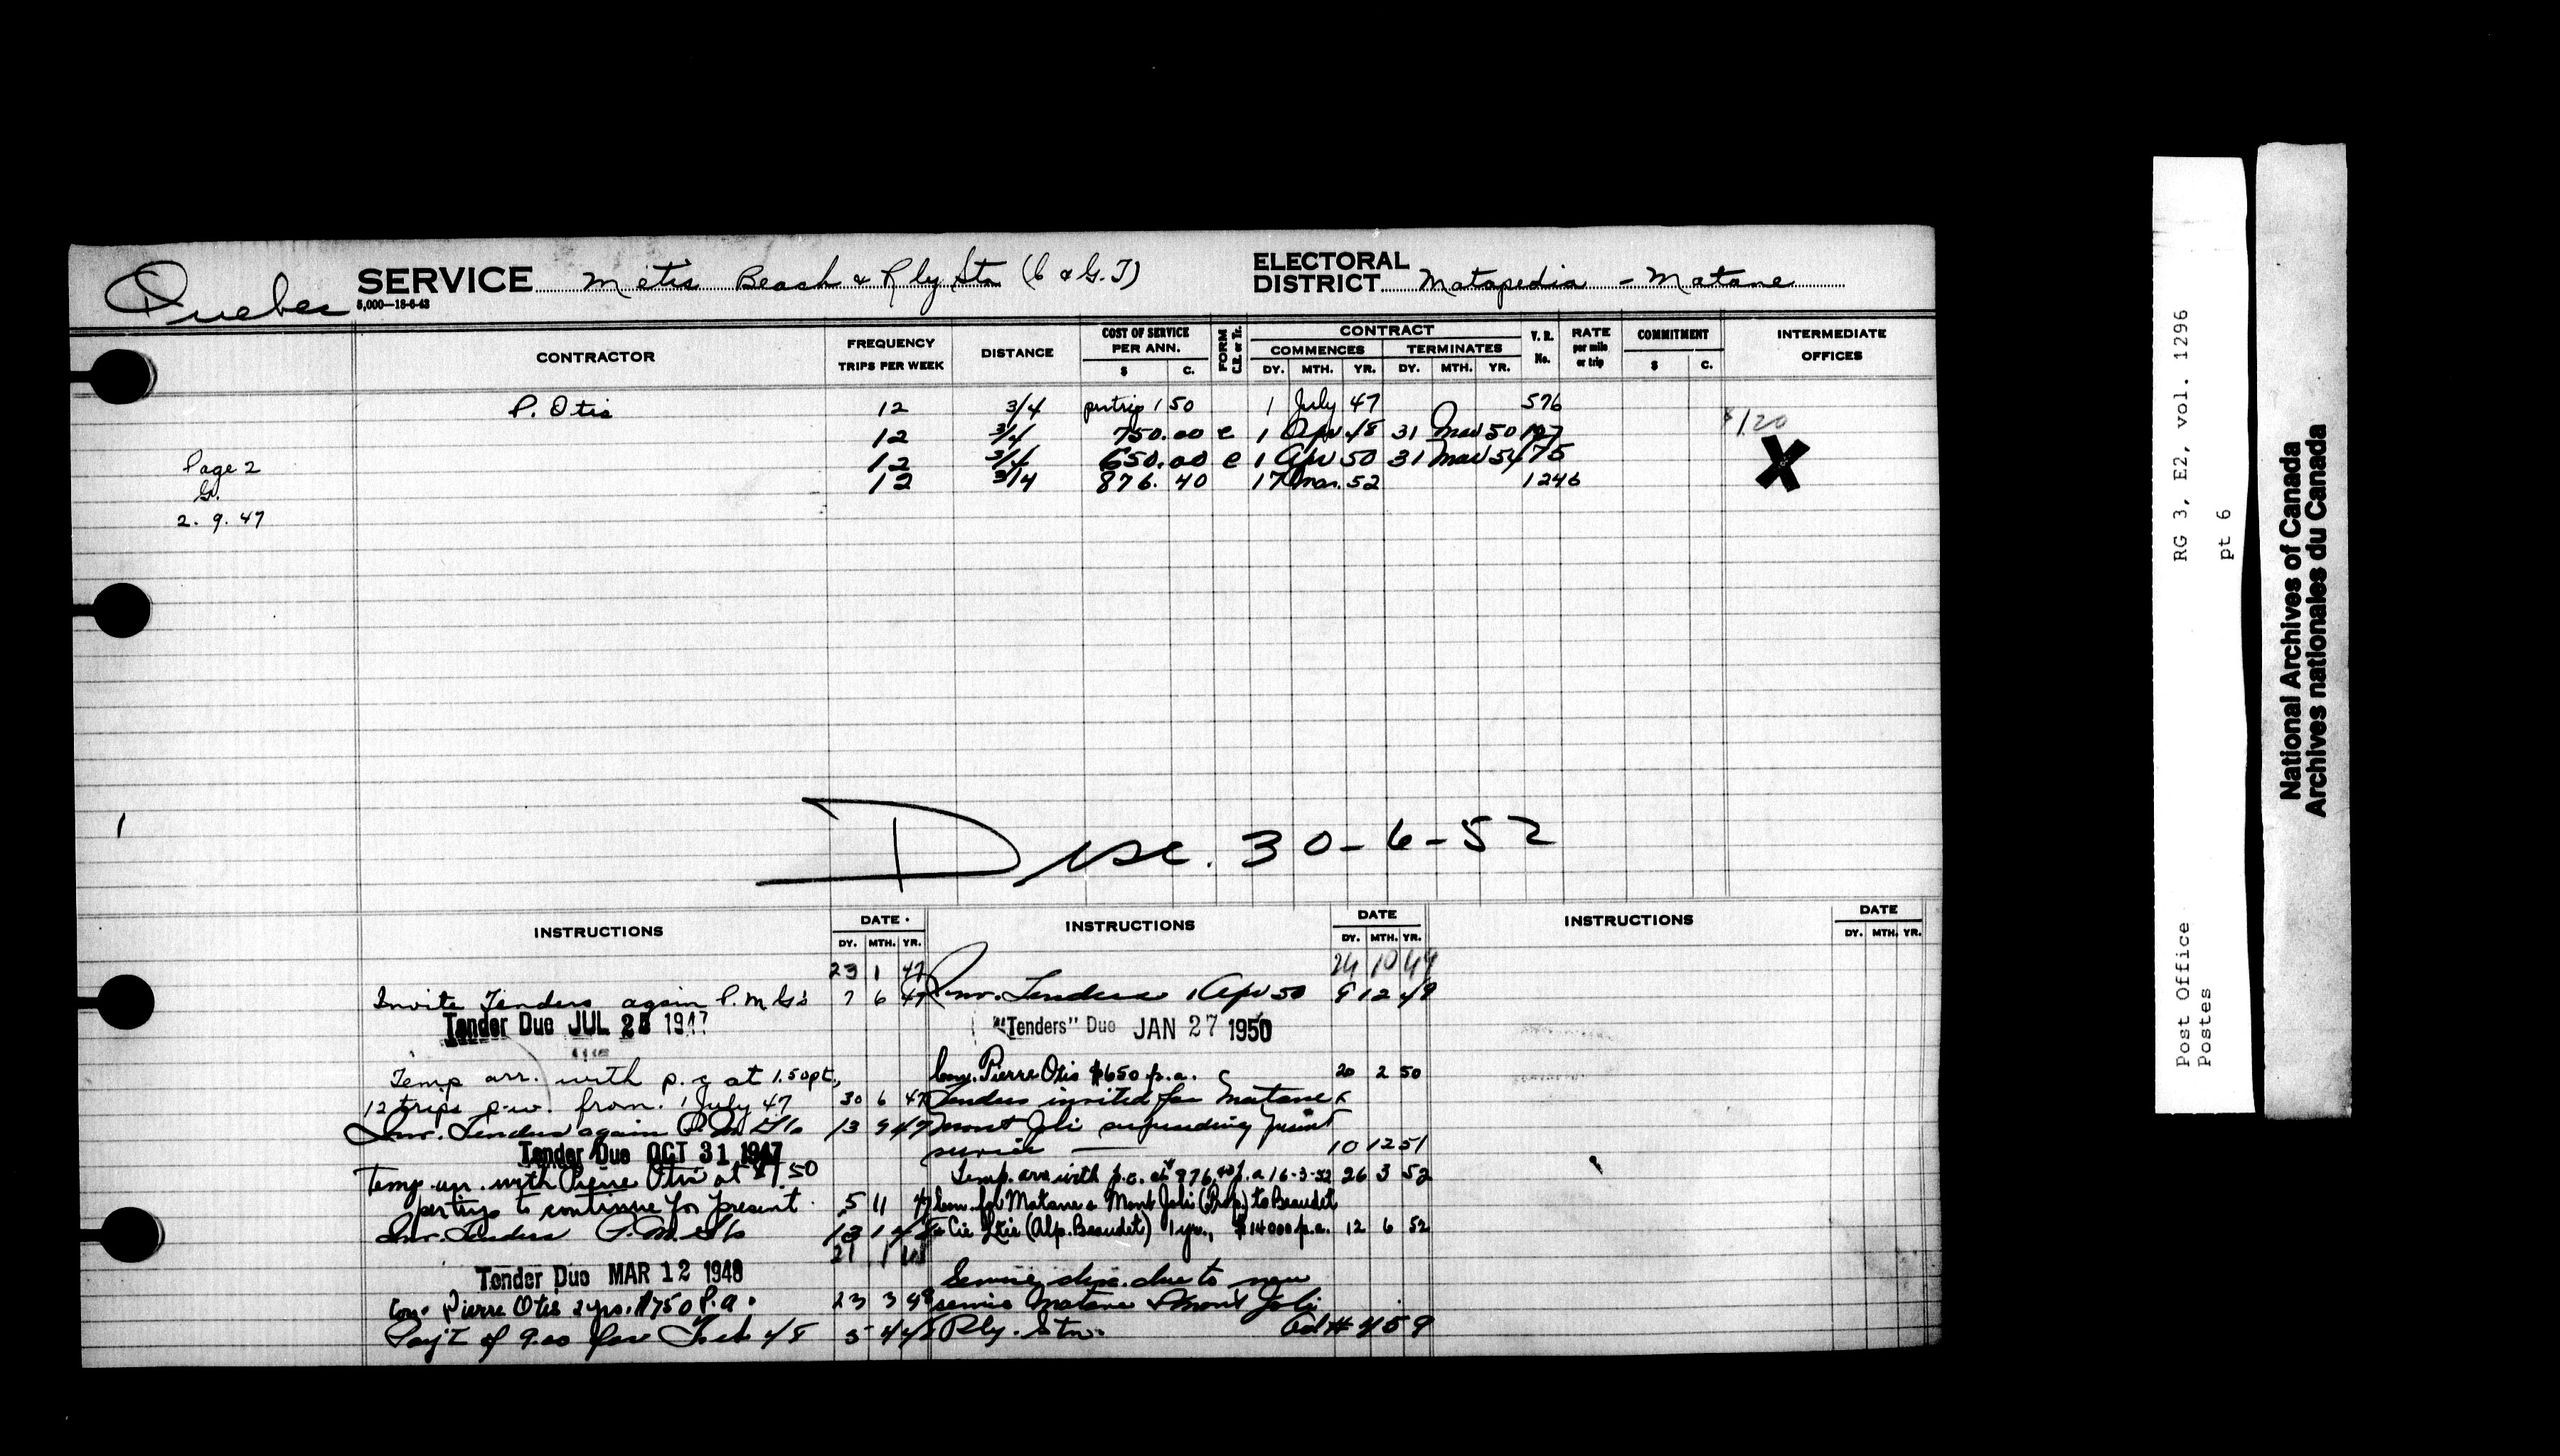 Quebec
SERVICE Metis Beach & Rly Stn (C & G.T)
5,000—18-6-43
ELECTORAL
DISTRICT Matapedia - Matane
CONTRACTOR
FREQUENCY
TRIPS PER WEEK
DISTANCE
COST OF SERVICE
PER ANN.
$ C.
FORM
C.R. or Tr.
CONTRACT
COMMENCES TERMINATES
DY. MTH. YR. DY. MTH. YR.
V. R.
No.
RATE
per mile
or trip
COMMITMENT
$ C.
INTERMEDIATE
OFFICES
P. Otis 12 3/4 per trip 1 50 1 July 47 576
$120
12 3/4 750.00 e 1 Apr 48 31 Mar 50 107
Page 2 12 3/4 650.00 e 1 Apr 50 31 Mar 54 75
X
G. 12 3/4 876. 40 17 Mar. 52 1246
2. 9. 47
1
Disc. 30-6-52
INSTRUCTIONS
DATE
DY. MTH. YR.
23 1 47
Invite Tenders again P.M.G's 7 6 47
Tender Due JUL 28 1947
Temp arr. with p.c at 1.50 pt,
12 trips p.w. from 1 July 47 30 6 47
Inv. Tenders again P.M.G's 13 9 47
Tender Due OCT 31 1947
Temp arr. with Pierre Otis at $1.50
per trip to continue for present 5 11 47
Inv. Tenders P.M.G's 13 1 48
21 1 48
Tender Due MAR 12 1948
Con. Pierre Otis 2 yrs. $750 P.a. 23 3 48
Pay't of 9.00 for Feb 48 5 4 48
INSTRUCTIONS
DATE
DY. MTH. YR.
24 10 49
Inv. Tenders 1 Apr 50 9 12 49
"Tenders" Due JAN 27 1950
Con. Pierre Otis $650 p.a. 20 2 50
Tenders invited for Matane &
Mont Joli superseding present
service — 10 12 51
Temp. arr with p.c. at $876.40 p.a 16-3-52 26 3 52
Con. for Matane & Mont Joli (Prop.) to Beaudet
& Cie Ltée (Alp. Beaudet) 1 yr., $14000 p.a. 12 6 52
Service disc. due to new
service Matane & Mont Joli
Rly. Stn. Ad # 459
INSTRUCTIONS
DATE
DY. MTH. YR.
RG 3, E2, vol. 1296
pt 6
Post Office
Postes
National Archives of Canada
Archives nationales du Canada